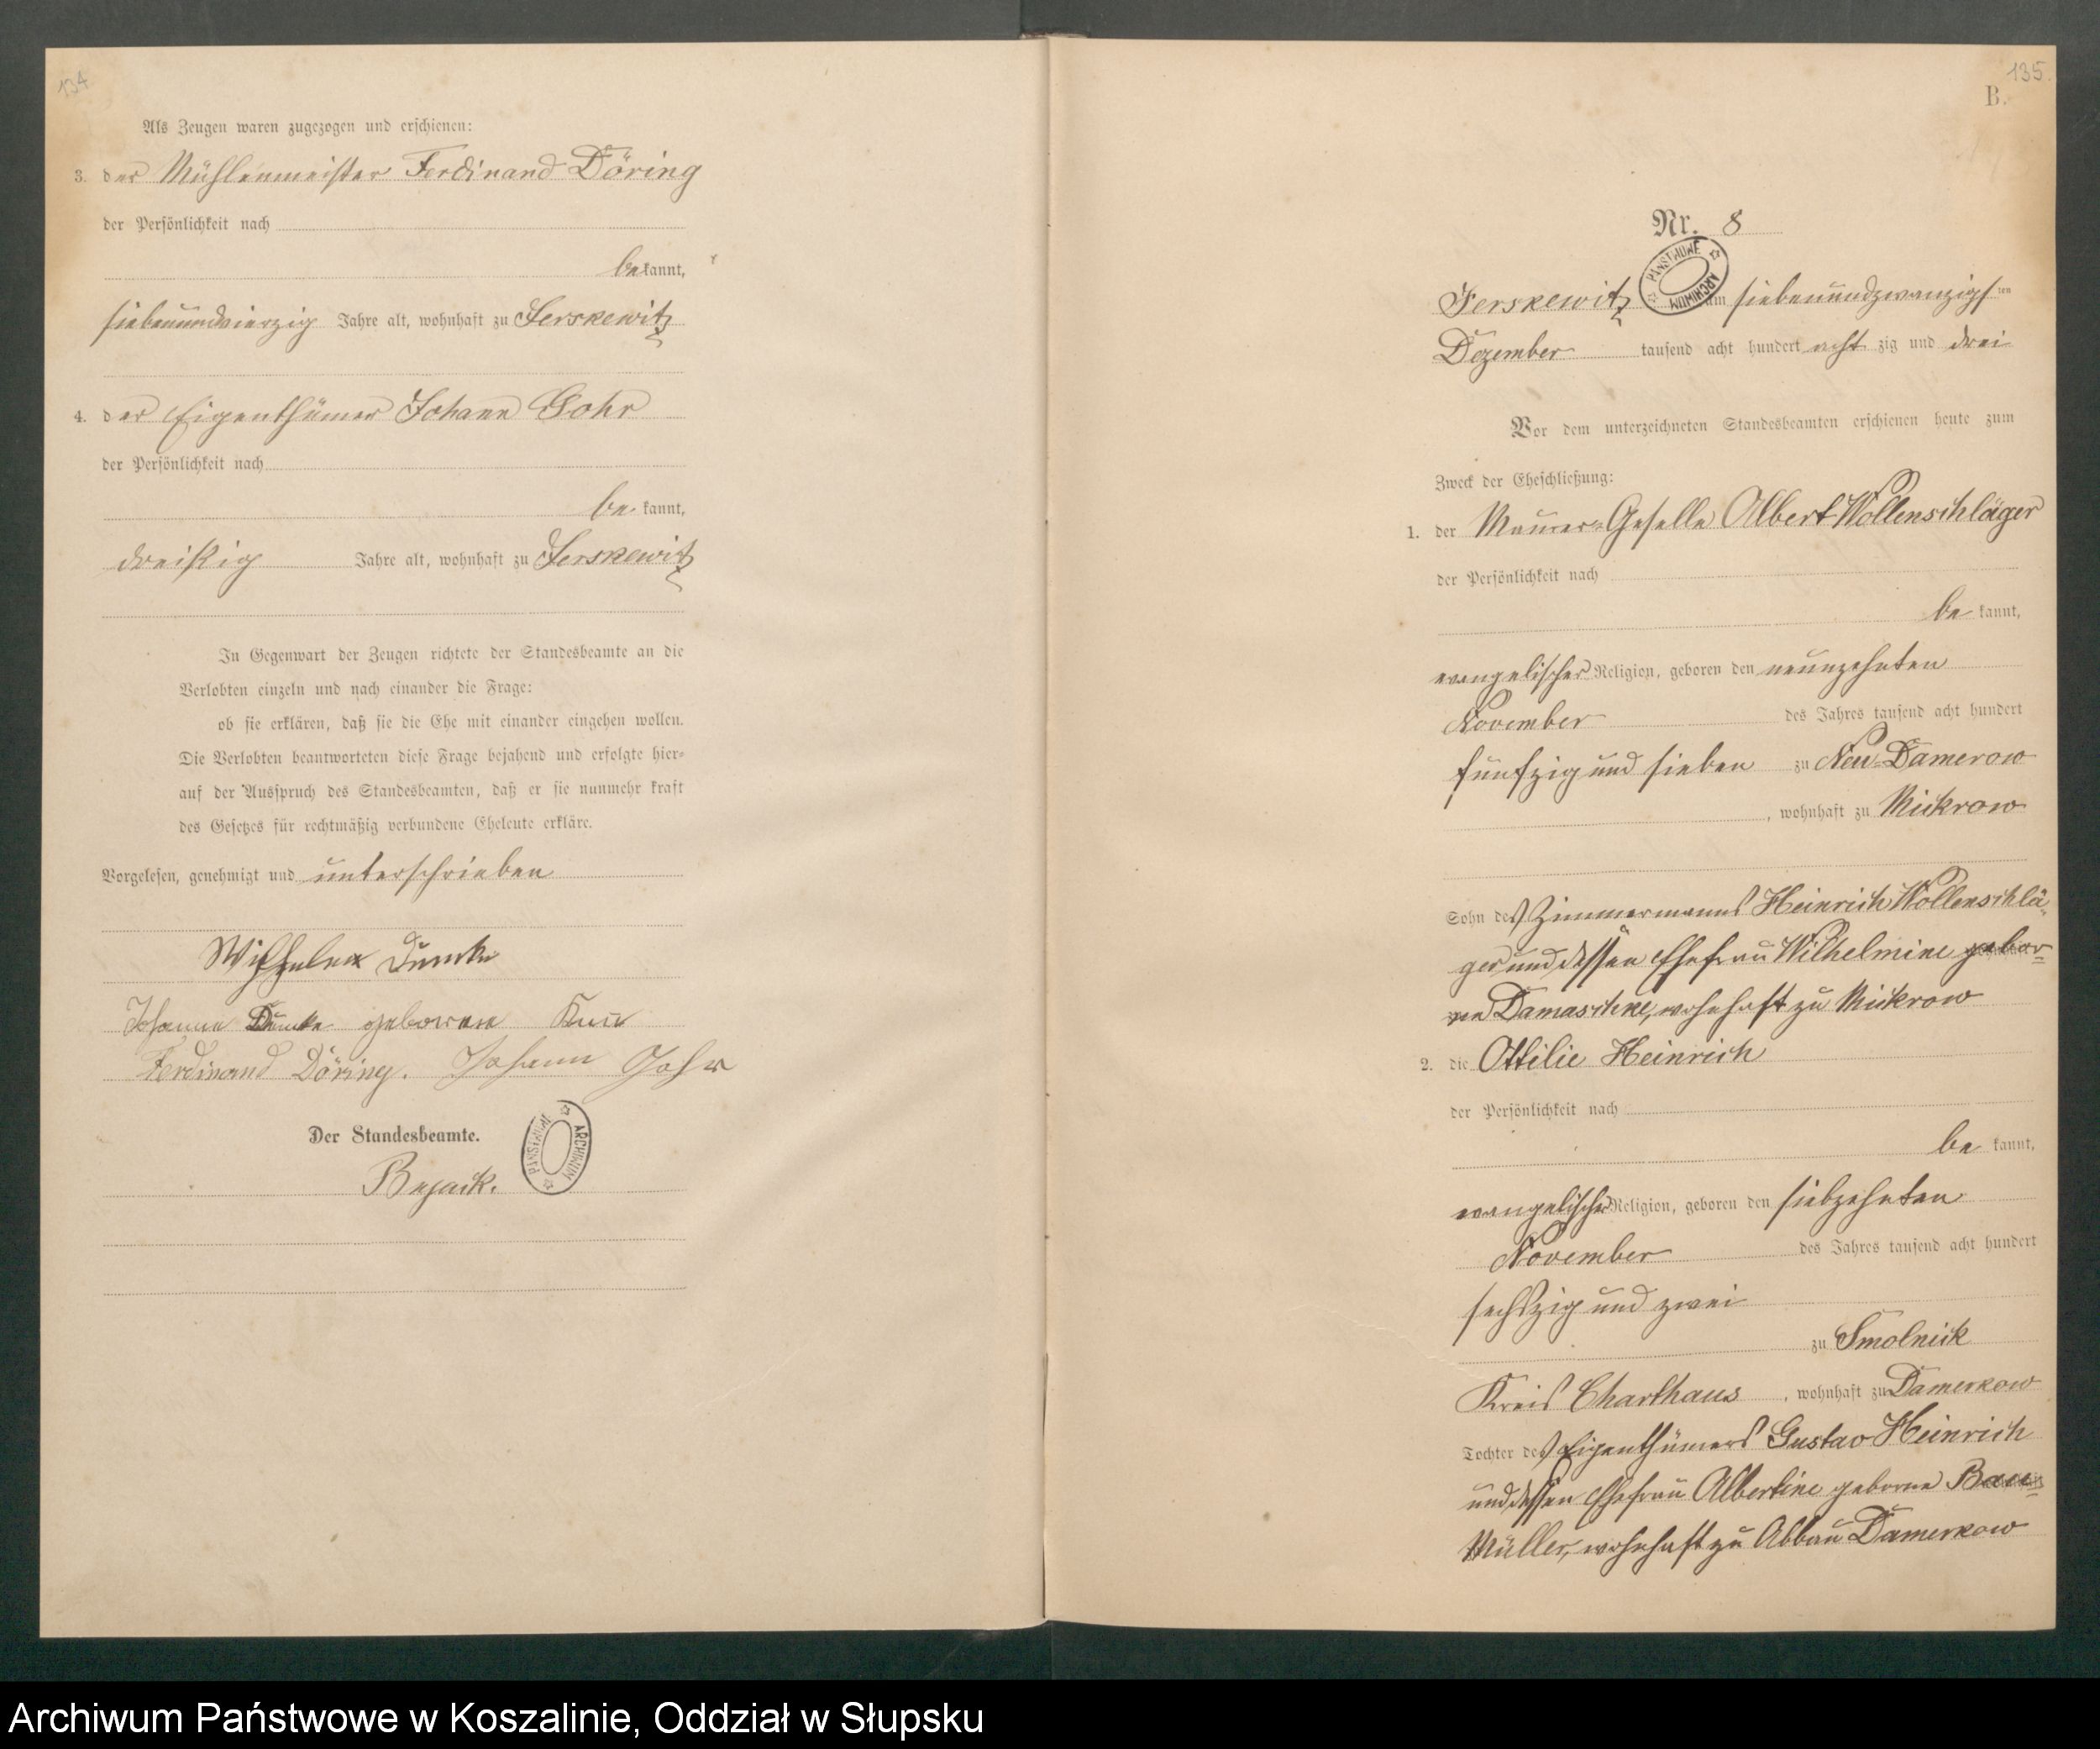 134
Als Zeugen waren zugezogen und erschienen:
3. der Mühlenmeister Ferdinand Döring
der Persönlichkeit nach
be kannt,
siebenundvierzig Jahre alt, wohnhaft zu Jerskewitz
4. der Eigenthümer Johann Gohr
der Persönlichkeit nach
be kannt,
dreißig Jahre alt, wohnhaft zu Jerskewitz
In Gegenwart der Zeugen richtete der Standesbeamte an die
Verlobten einzeln und nach einander die Frage:
ob sie erklären, daß sie die Ehe mit einander eingehen wollen.
Die Verlobten beantworteten diese Frage bejahend und erfolgte hier-
auf der Ausspruch des Standesbeamten, daß er sie nunmehr kraft
des Gesetzes für rechtmäßig verbundene Eheleute erkläre.
Vorgelesen, genehmigt und unterschrieben
Wilhelm
Johanne geborene
Ferdinand Döring. Johann Gohr
Der Standesbeamte.
ARCHIWUM PAŃSTWOWE
135.
B.
Nr. 8
ARCHIWUM PAŃSTWOWE
Jerskewitz am siebenundzwanzigsten
Dezember tausend acht hundert acht zig und drei
Vor dem unterzeichneten Standesbeamten erschienen heute zum
Zweck der Eheschließung:
1. der Maurer-Geselle Albert Wollenschläger
der Persönlichkeit nach
be kannt,
evangelischer Religion, geboren den neunzehnten
November des Jahres tausend acht hundert
fünfzig und sieben zu Neu-Damerow
, wohnhaft zu Mickrow
Sohn des Zimmermanns Heinrich Wollenschlä-
ger und dessen Ehefrau Wilhelmine gebor-
ne Damaschke, wohnhaft zu Mickrow
2. die Ottilie Heinrich
der Persönlichkeit nach
be kannt,
evangelischer Religion, geboren den siebzehnten
November des Jahres tausend acht hundert
sechszig und zwei
zu Smolnick
Kreis Charthaus, wohnhaft zu Damerkow
Tochter des Eigenthümers Gustav Heinrich
und dessen Ehefrau Albertine geborne Bau-
Müller, wohnhaft zu Abbau Damerkow
Archiwum Państwowe w Koszalinie, Oddział w Słupsku